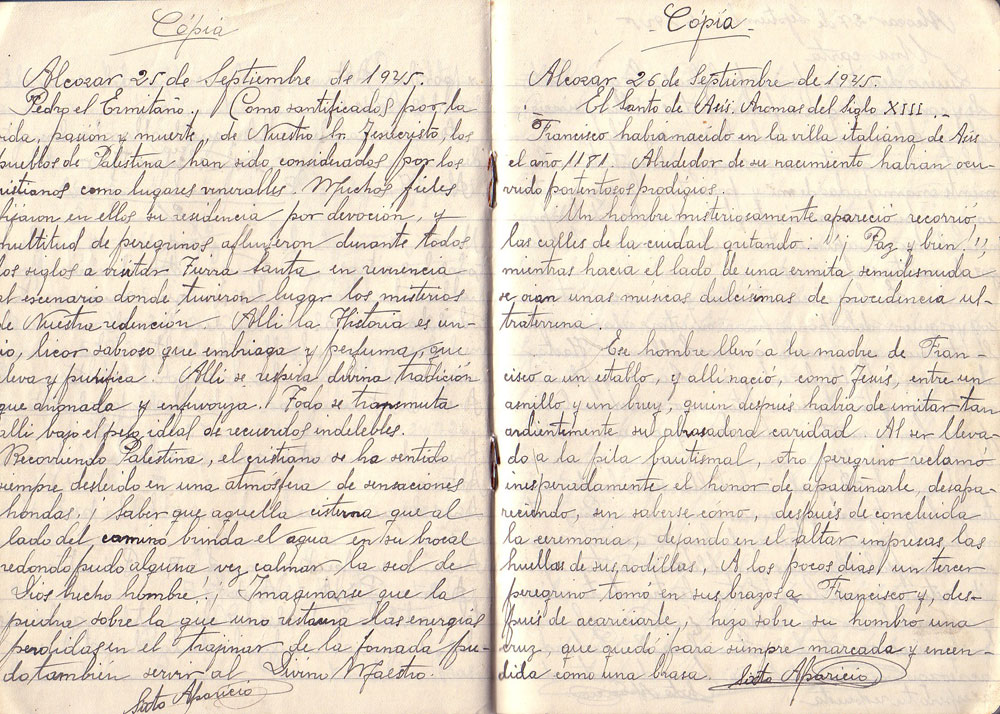 Cópia
Alcozar 25 de Septiembre de 1945.
Pedro el Ermitaño. Como santificados por la
vida, pasión y muerte, de Nuestro Sr. Jesucristo, los
pueblos de Palestina han sido considerados por los
cristianos como lugares venerables. Muchos fieles
fijaron en ellos su residencia por devoción, y
multitud de peregrinos afluyeron durante todos
los siglos a visitar Tierra Santa en reverencia
al escenario donde tuvieron lugar los misterios
de Nuestra redención. Alli la Historia es un
licor sabroso que embriaga y perfuma, que
eleva y purifica. Alli se respira divina tradición
que anonada y enfervoriza. Todo se transmuta
alli bajo el peso ideal de recuerdos indelebles.
Recorriendo Palestina, el cristiano se ha sentido
siempre desleido en una atmosfera de sensaciones
hondas. ¡Saber que aquella cisterna que al
lado del camino brinda el agua en su brocal
redondo pudo alguna vez calmar la sed de
Dios hecho hombre! ¡Imaginarse que la
piedra sobre la que uno restaura las energias
perdidas en el trajinar de la jornada pu-
do tambien servir al Divino Maestro.
Sixto Aparicio
- Cópia -
Alcozar 26 de Septiembre de 1945.
El Santo de Asis. Aromas del Siglo XIII.-
Francisco habia nacido en la villa italiana de Asis
el año 1181. Alrededor de su nacimiento habian ocu-
rrido portentosos prodigios.
Un hombre misteriosamente apareció, recorrió,
las calles de la cuidad gritando: ¡¡Paz y bien!!
mientras hacia el lado de una ermita semidesnuda
se oian unas músicas dulcisimas de procedencia ul-
traterrena.
Ese hombre llevó a la madre de Fran-
cisco a un establo, y alli nació, como Jesús, entre un
asnillo y un buey, quien después habia de imitar tan
ardientemente su abrasadora caridad. Al ser lleva-
do a la pila bautismal, otro peregrino reclamó
inesperadamente el honor de apadrinarle, desapa-
reciendo, sin saberse como, después de concluida
la ceremonia, dejando en el altar impresas las
huellas de sus rodillas. A los pocos dias un tercer
peregrino tomó en sus brazos a Francisco y, des-
pués de acariciarle, hizo sobre su hombro una
cruz, que quedó para siempre marcada y encen-
dida como una brasa. Sixto Aparicio